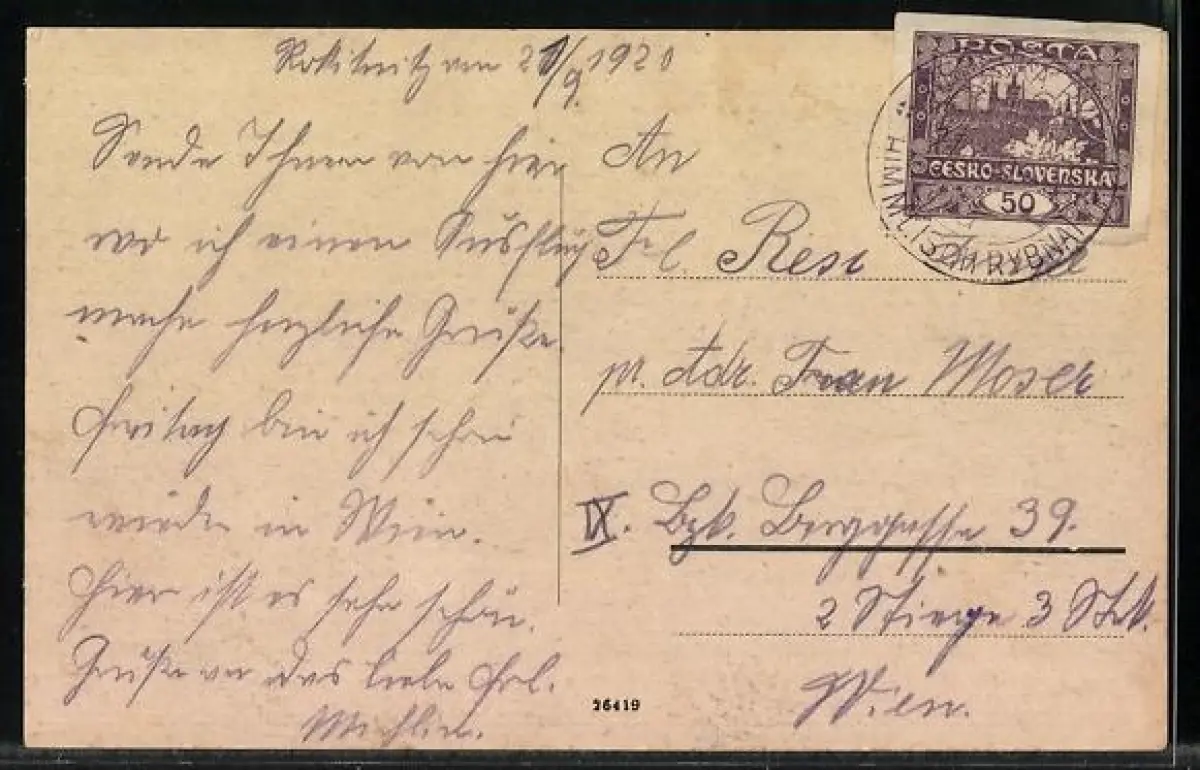 Rokitnitz am 21/9. 1920
Sende Ihnen von hier
wo ich einen Ausflug
mache herzliche Grüße.
Freitag bin ich schon
wieder in Wien.
Hier ist es sehr schön.
Grüße an das liebe Frl.
An
Frl Resi
pr. Adr. Frau Moser
IX. Bzk. Berggasse 39.
2 Stiege 3 Stk.
Wien.
POSTA
ČESKO-SLOVENSKÁ
50
26419